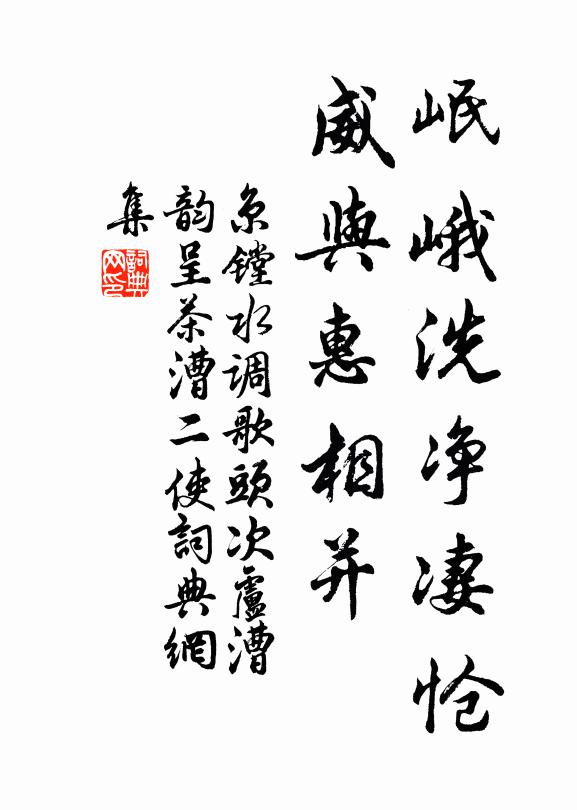 岷峨洗净凄怆
威與惠相并
京镗水调歌頭次盧漕
韵呈茶漕二使詞典網
集
詞典
网印